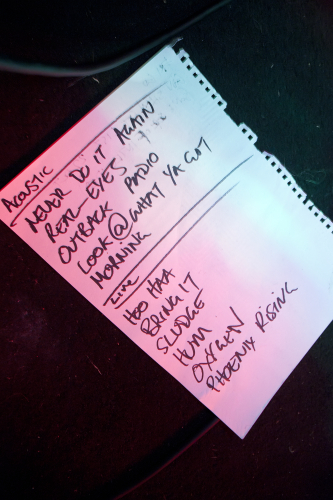 ACOUSTIC
NEVER DO IT AGAIN
REAL-EYES
OUTBACK RADIO
LOOK@WHAT YA GOT
MORNING
LIVE
HOO HAA
BRING IT
SLUDGE
HUM
OXYGEN
PHOENIX RISING